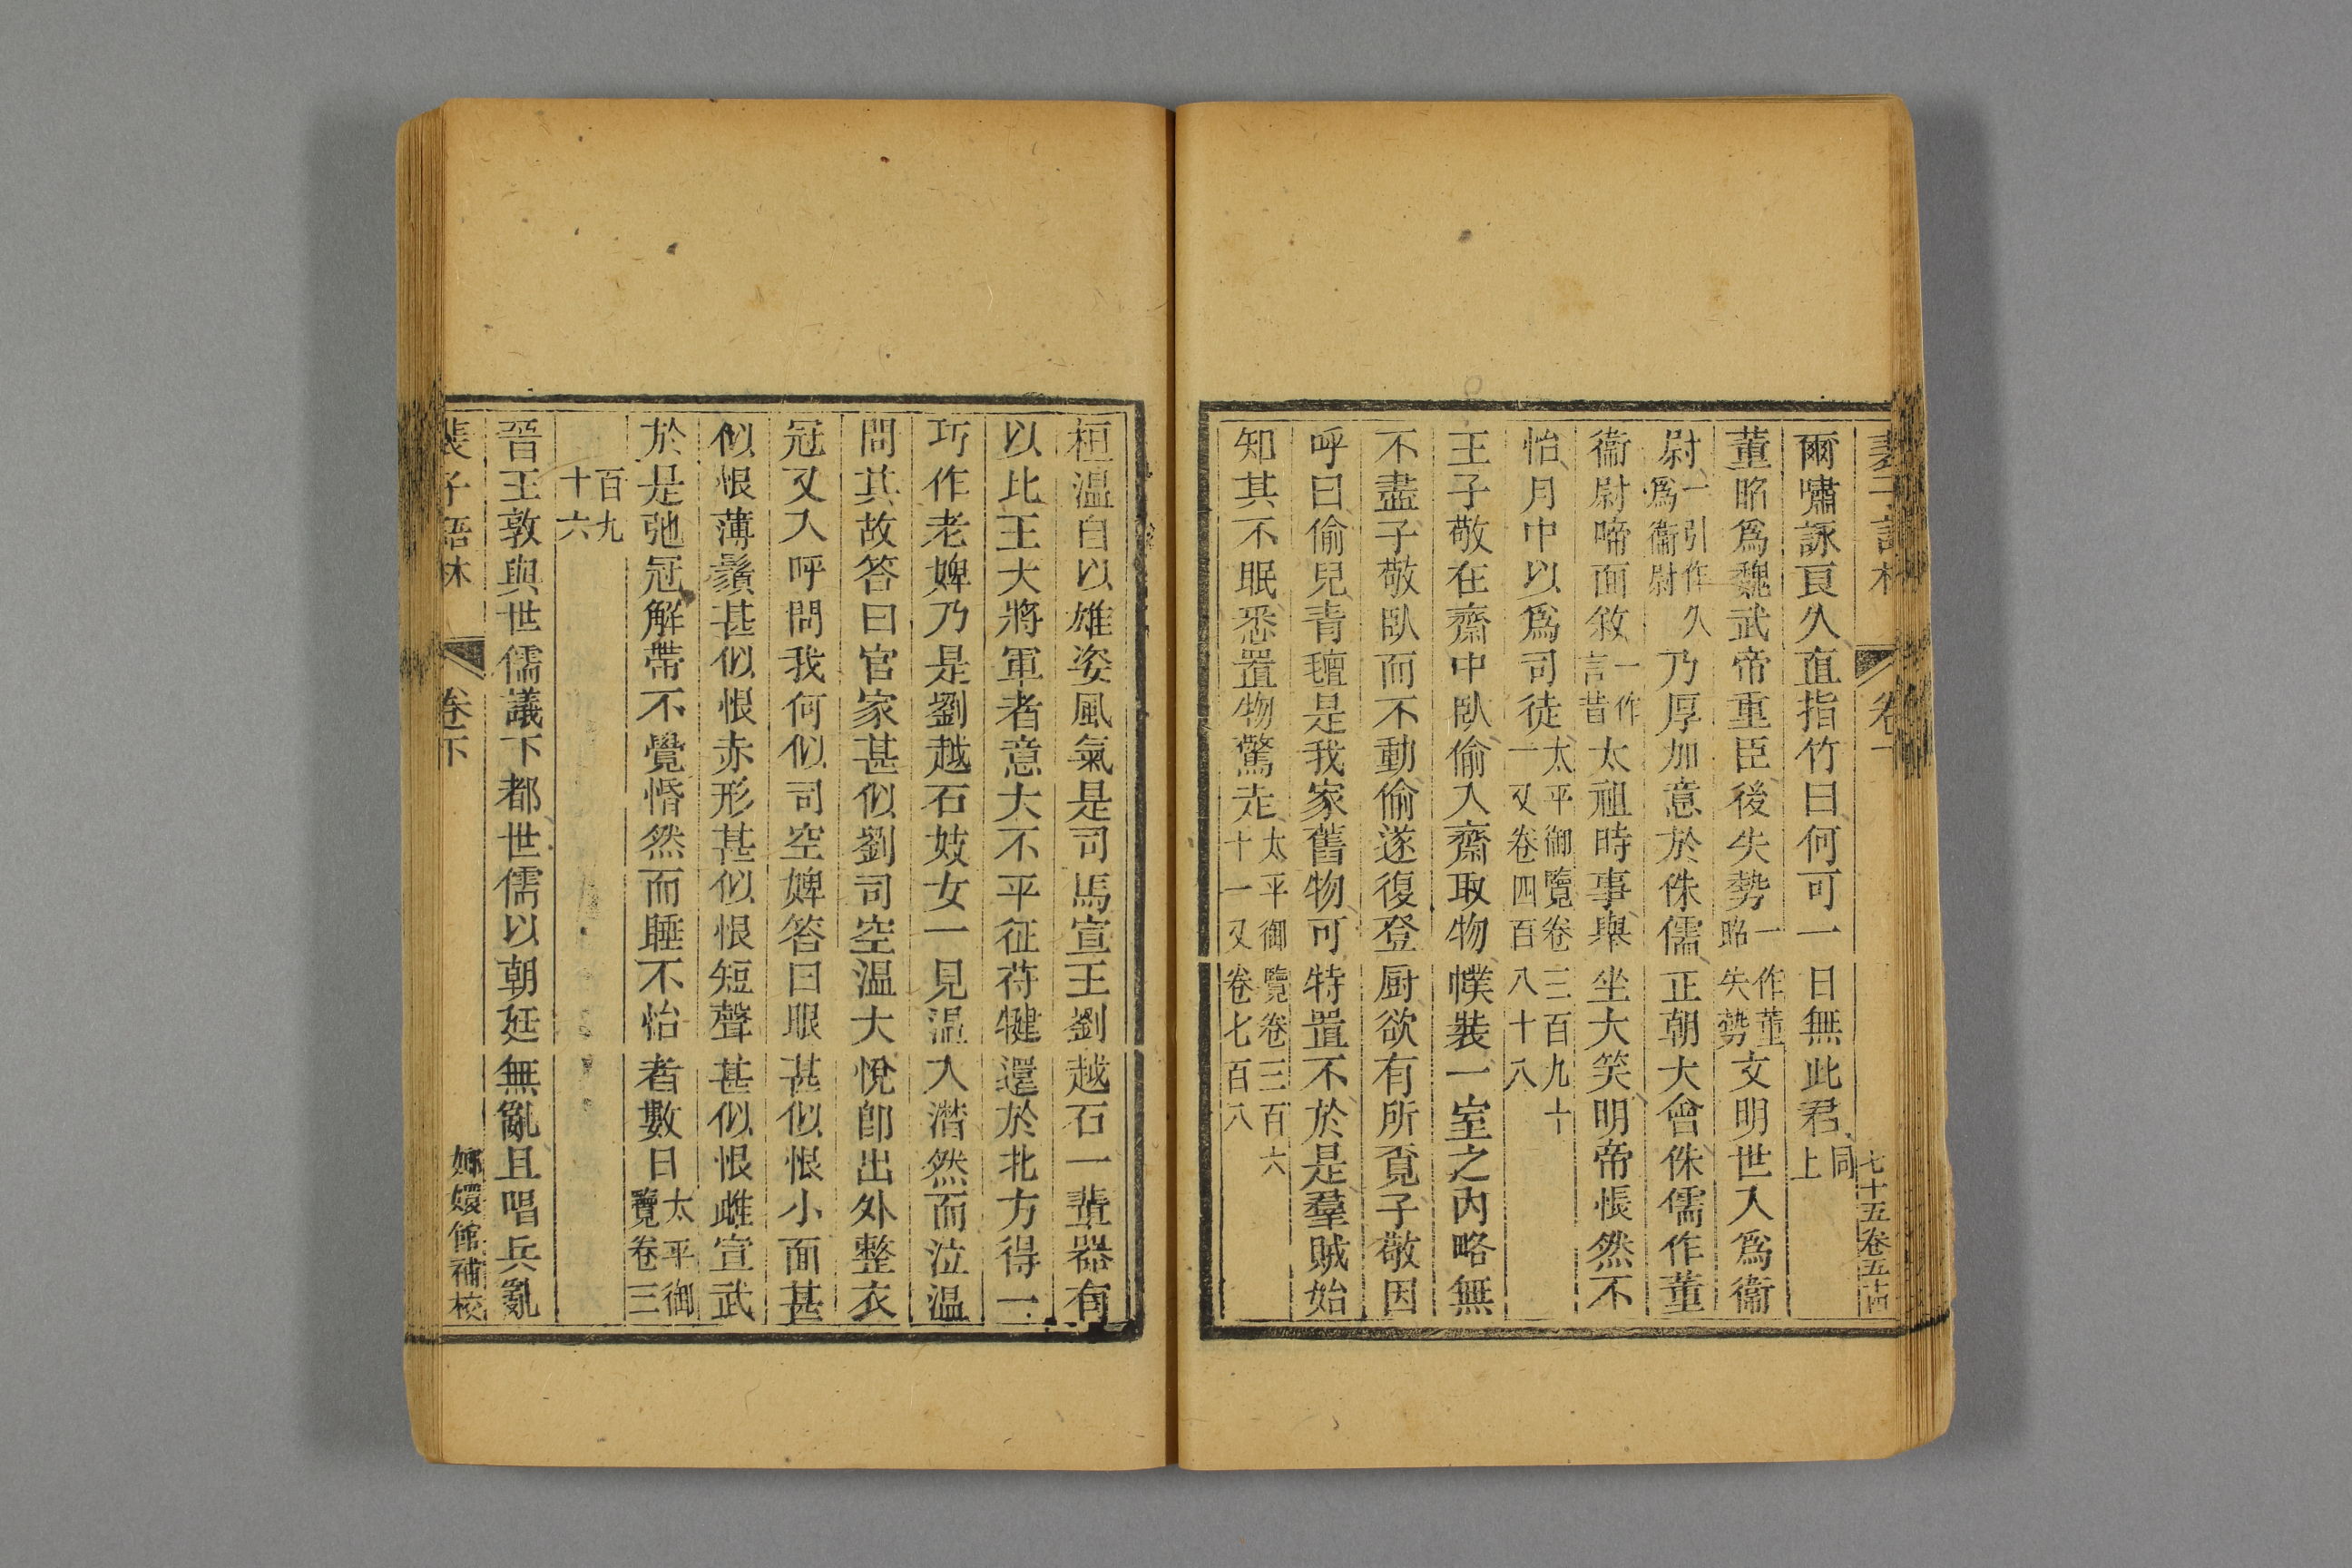 裴子語林 卷下 七十五卷五十四
爾嘯詠良久直指竹曰何可一日無此君同上
董昭爲魏武帝重臣後失勢一作董昭失勢文明世入爲衞
尉一引作久爲衞尉乃厚加意於侏儒正朝大會侏儒作董
衞尉啼面敘一作言昔太祖時事舉坐大笑明帝悵然不
怡月中以爲司徒太平御覽卷三百九十一又卷四百八十八
王子敬在齋中臥偷入齋取物幞裝一室之內略無
不盡子敬臥而不動偷遂復登厨欲有所覓子敬因
呼曰偷兒青氊是我家舊物可特置不於是羣賊始
知其不眠悉置物驚走太平御覽卷三百六十一又卷七百八
桓温自以雄姿風氣是司馬宣王劉越石一輩器有
以比王大將軍者意大不平征苻犍還於北方得一
巧作老婢乃是劉越石妓女一見温入潸然而泣温
問其故答曰官家甚似劉司空温大悅卽出外整衣
冠又入呼問我何似司空婢答曰眼甚似恨小面甚
似恨薄鬚甚似恨赤形甚似恨短聲甚似恨雌宣武
於是弛冠解帶不覺惛然而睡不怡者數日太平御覽卷三
百九十六
晉王敦與世儒議下都世儒以朝廷無亂且唱兵亂
裴子語林 卷下 嫏嬛館補校